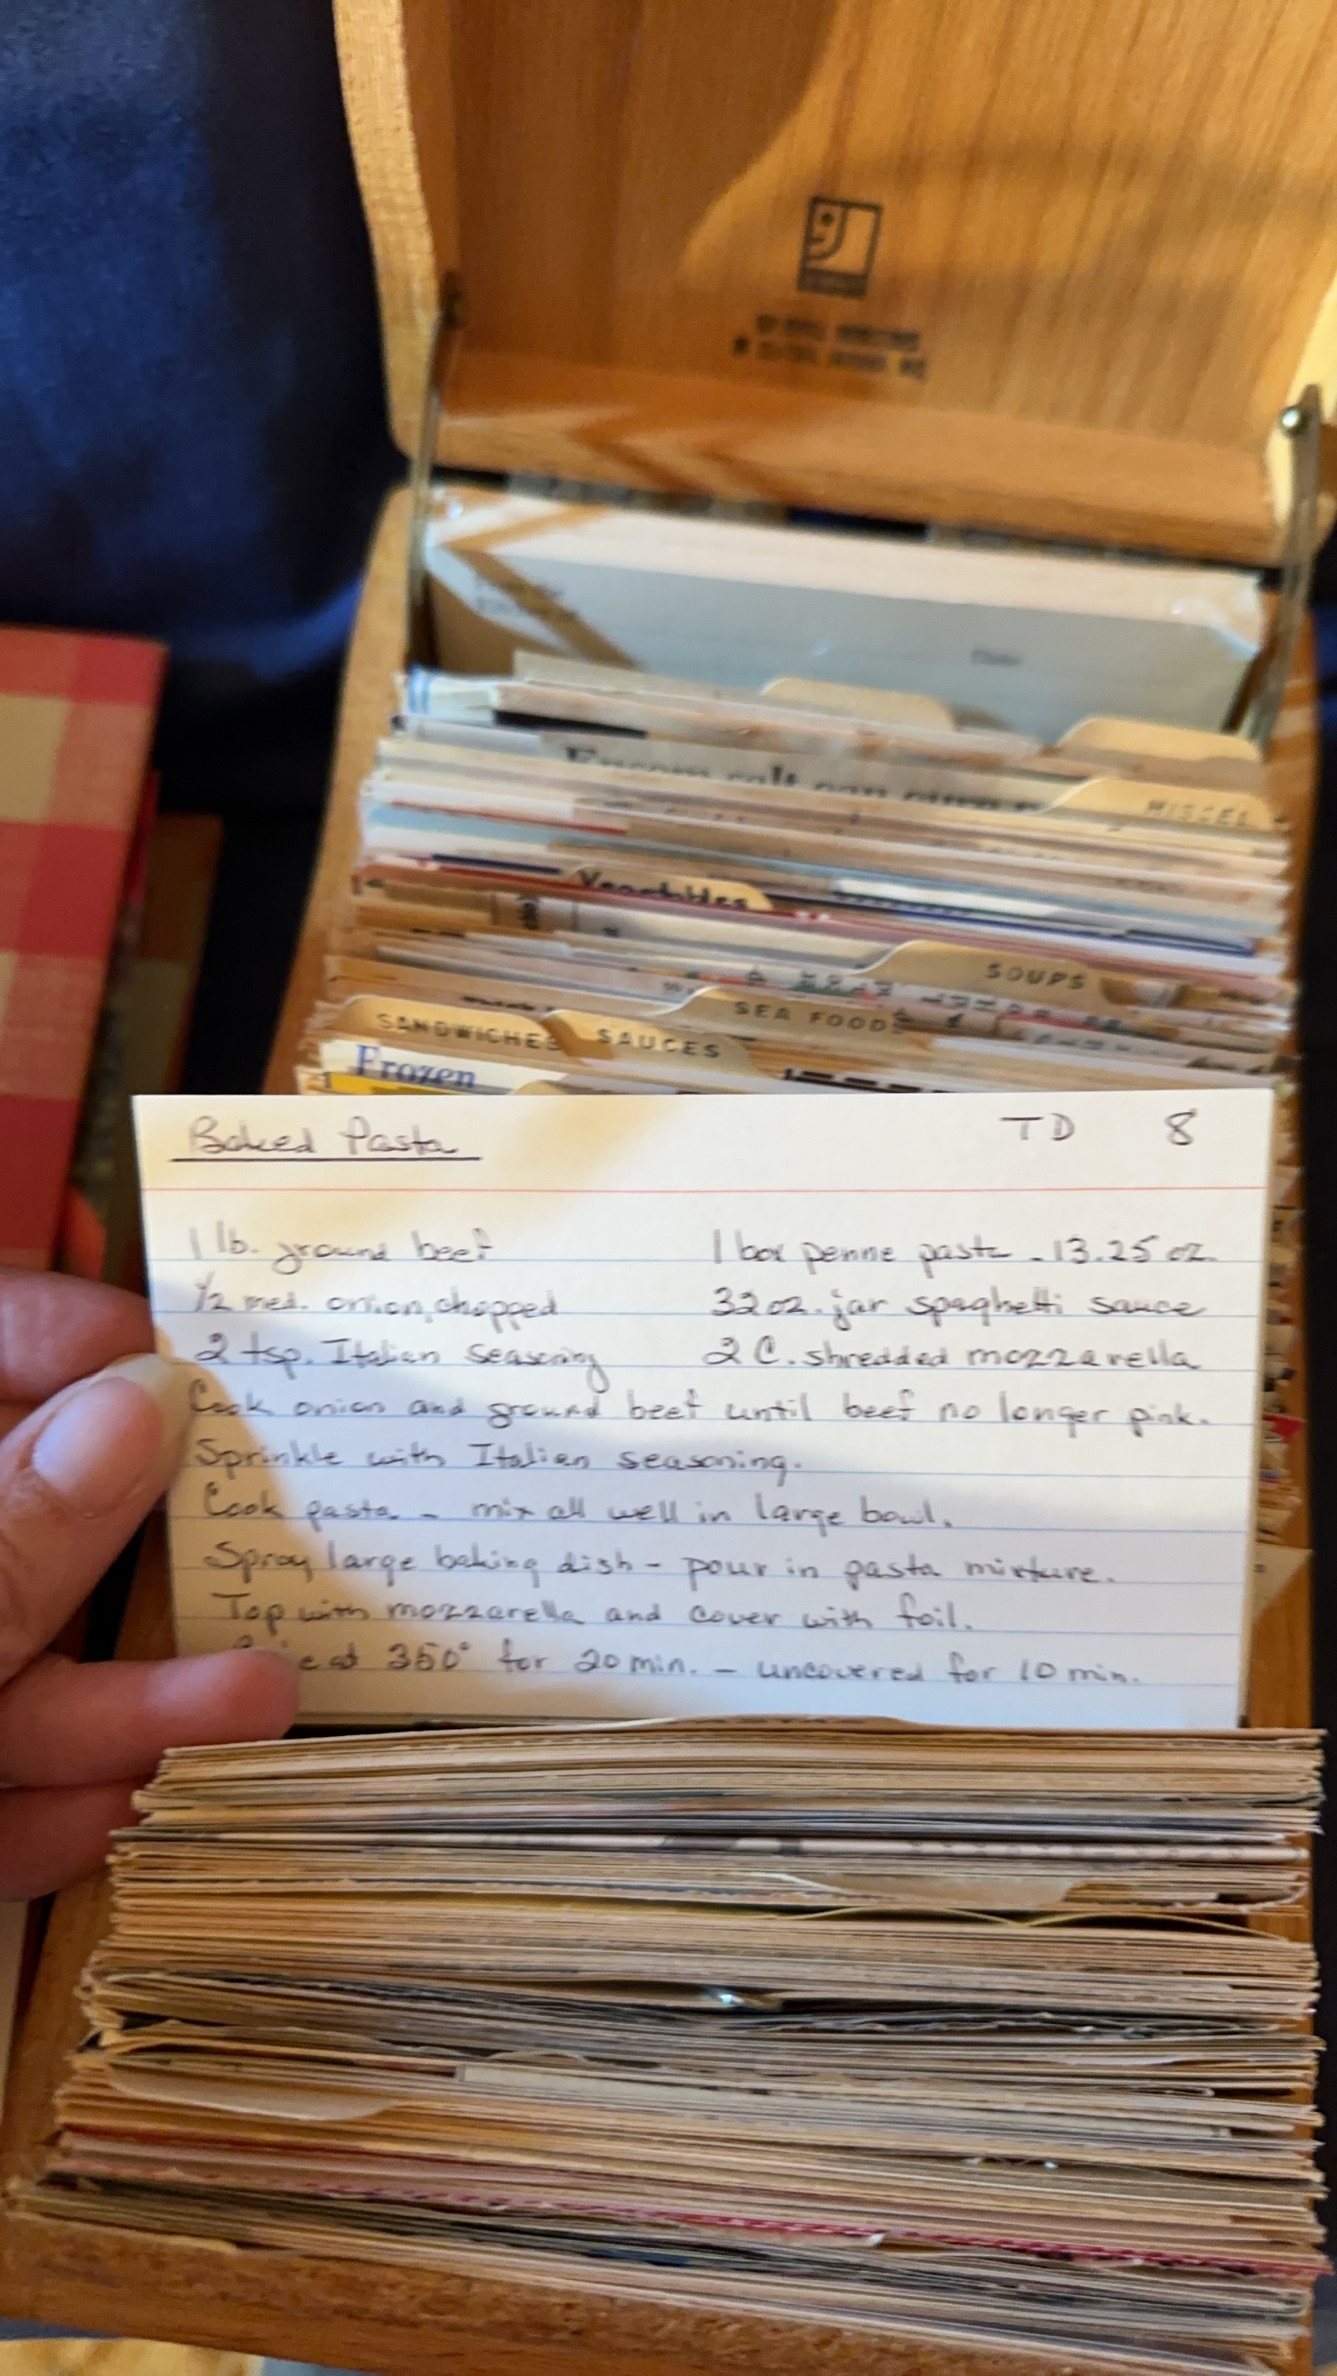 MISCEL
Vegetables
SOUPS
SEA FOOD
SANDWICHES SAUCES
Frozen
Baked Pasta TD 8
1 lb. ground beef 1 box penne pasta - 13.25 oz.
1/2 med. onion, chopped 32 oz. jar spaghetti sauce
2 tsp. Italian seasoning 2 C. shredded mozzarella
Cook onion and ground beef until beef no longer pink.
Sprinkle with Italian seasoning.
Cook pasta - mix all well in large bowl.
Spray large baking dish - pour in pasta mixture.
Top with mozzarella and cover with foil.
at 350° for 20 min. - uncovered for 10 min.